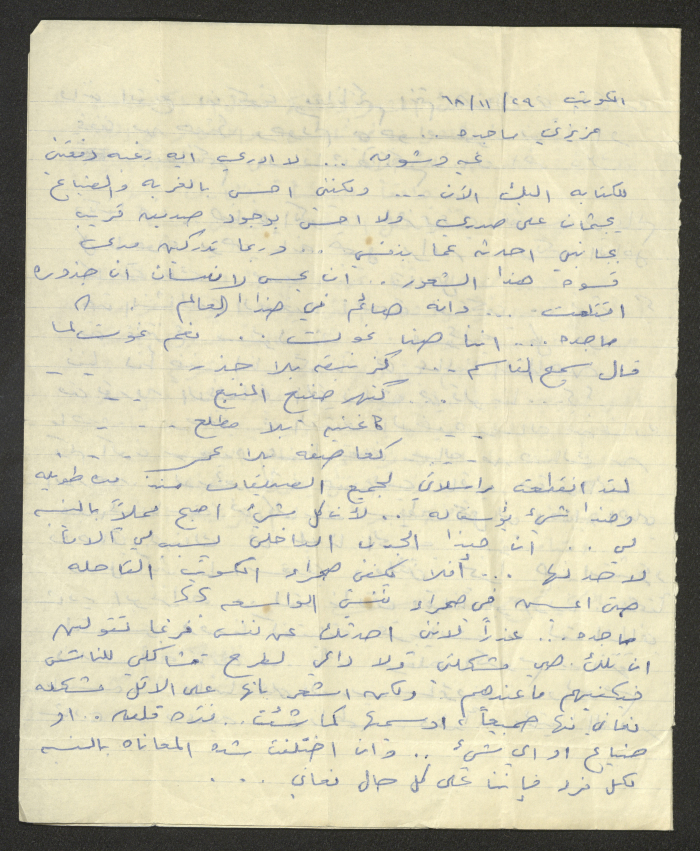 الكويت ٢٩/١١/٦٨
عزيزتي ماجده
تحيه وشوق ... لا ادري ايه رغبه دفعتني
للكتابه اليك الآن ... ولكنني احس بالغربه والضياع
يجثمان على صدري ولا احس بوجود صديق قريب
بجانبي احدثه عما بنفسي .. وربما تدركين مدى
قسوة هذا الشعور .. ان يحس الانسان ان جذوره
اقتلعت ... وانه هائم في هذا العالم
ماجده ... اننا هنا نموت .. نعم نموت كما
قال سميح القاسم ... كزنبقه بلا جذر
كنهر ضيع المنبع
كاغنيه بلا مطلع ..
كعاصفه بلا عمر
لقد انقطعت مراسلاتي لجميع الصديقات منذ مده طويله
وهذا شيء يؤسف له .. لأن كل شيء اصبح مملاً بالنسبه
لي .. ان هذا الجدب الداخلي يسبب لي آلاماً
لا حد لها ... أفلا تكفي صحراء الكويت القاحله
حتى اعيش في صحراء نفسي الواسعه ؟؟
ماجده ... عذراً لانني احدثك عن نفسي فربما تقولين
ان تلك هي مشكلتي ولا داعي لطرح مشاكلي للناس
فيكفيهم ما عندهم ولكن اشعر بانها على الاقل مشكله
نعاني منها جميعاً، اوسميها كما شئت .. قلق .. او
ضياع او اي شيء .. وان اختلفت شدة المعاناه بالنسبه
لكل فرد فإننا على كل حال نعاني ...